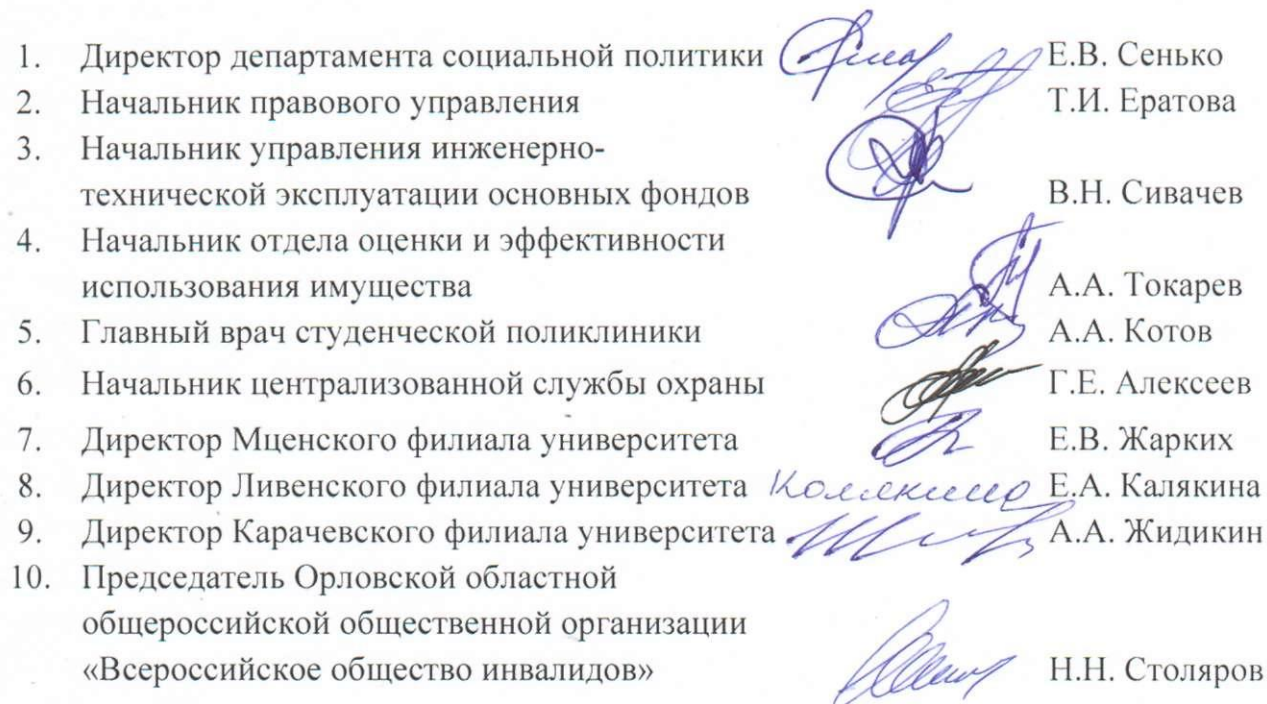 1. Директор департамента социальной политики Е.В. Сенько
2. Начальник правового управления Т.И. Ератова
3. Начальник управления инженерно-
технической эксплуатации основных фондов В.Н. Сивачев
4. Начальник отдела оценки и эффективности
использования имущества А.А. Токарев
5. Главный врач студенческой поликлиники А.А. Котов
6. Начальник централизованной службы охраны Г.Е. Алексеев
7. Директор Мценского филиала университета Е.В. Жарких
8. Директор Ливенского филиала университета Е.А. Калякина
9. Директор Карачевского филиала университета А.А. Жидикин
10. Председатель Орловской областной
общероссийской общественной организации
«Всероссийское общество инвалидов» Н.Н. Столяров